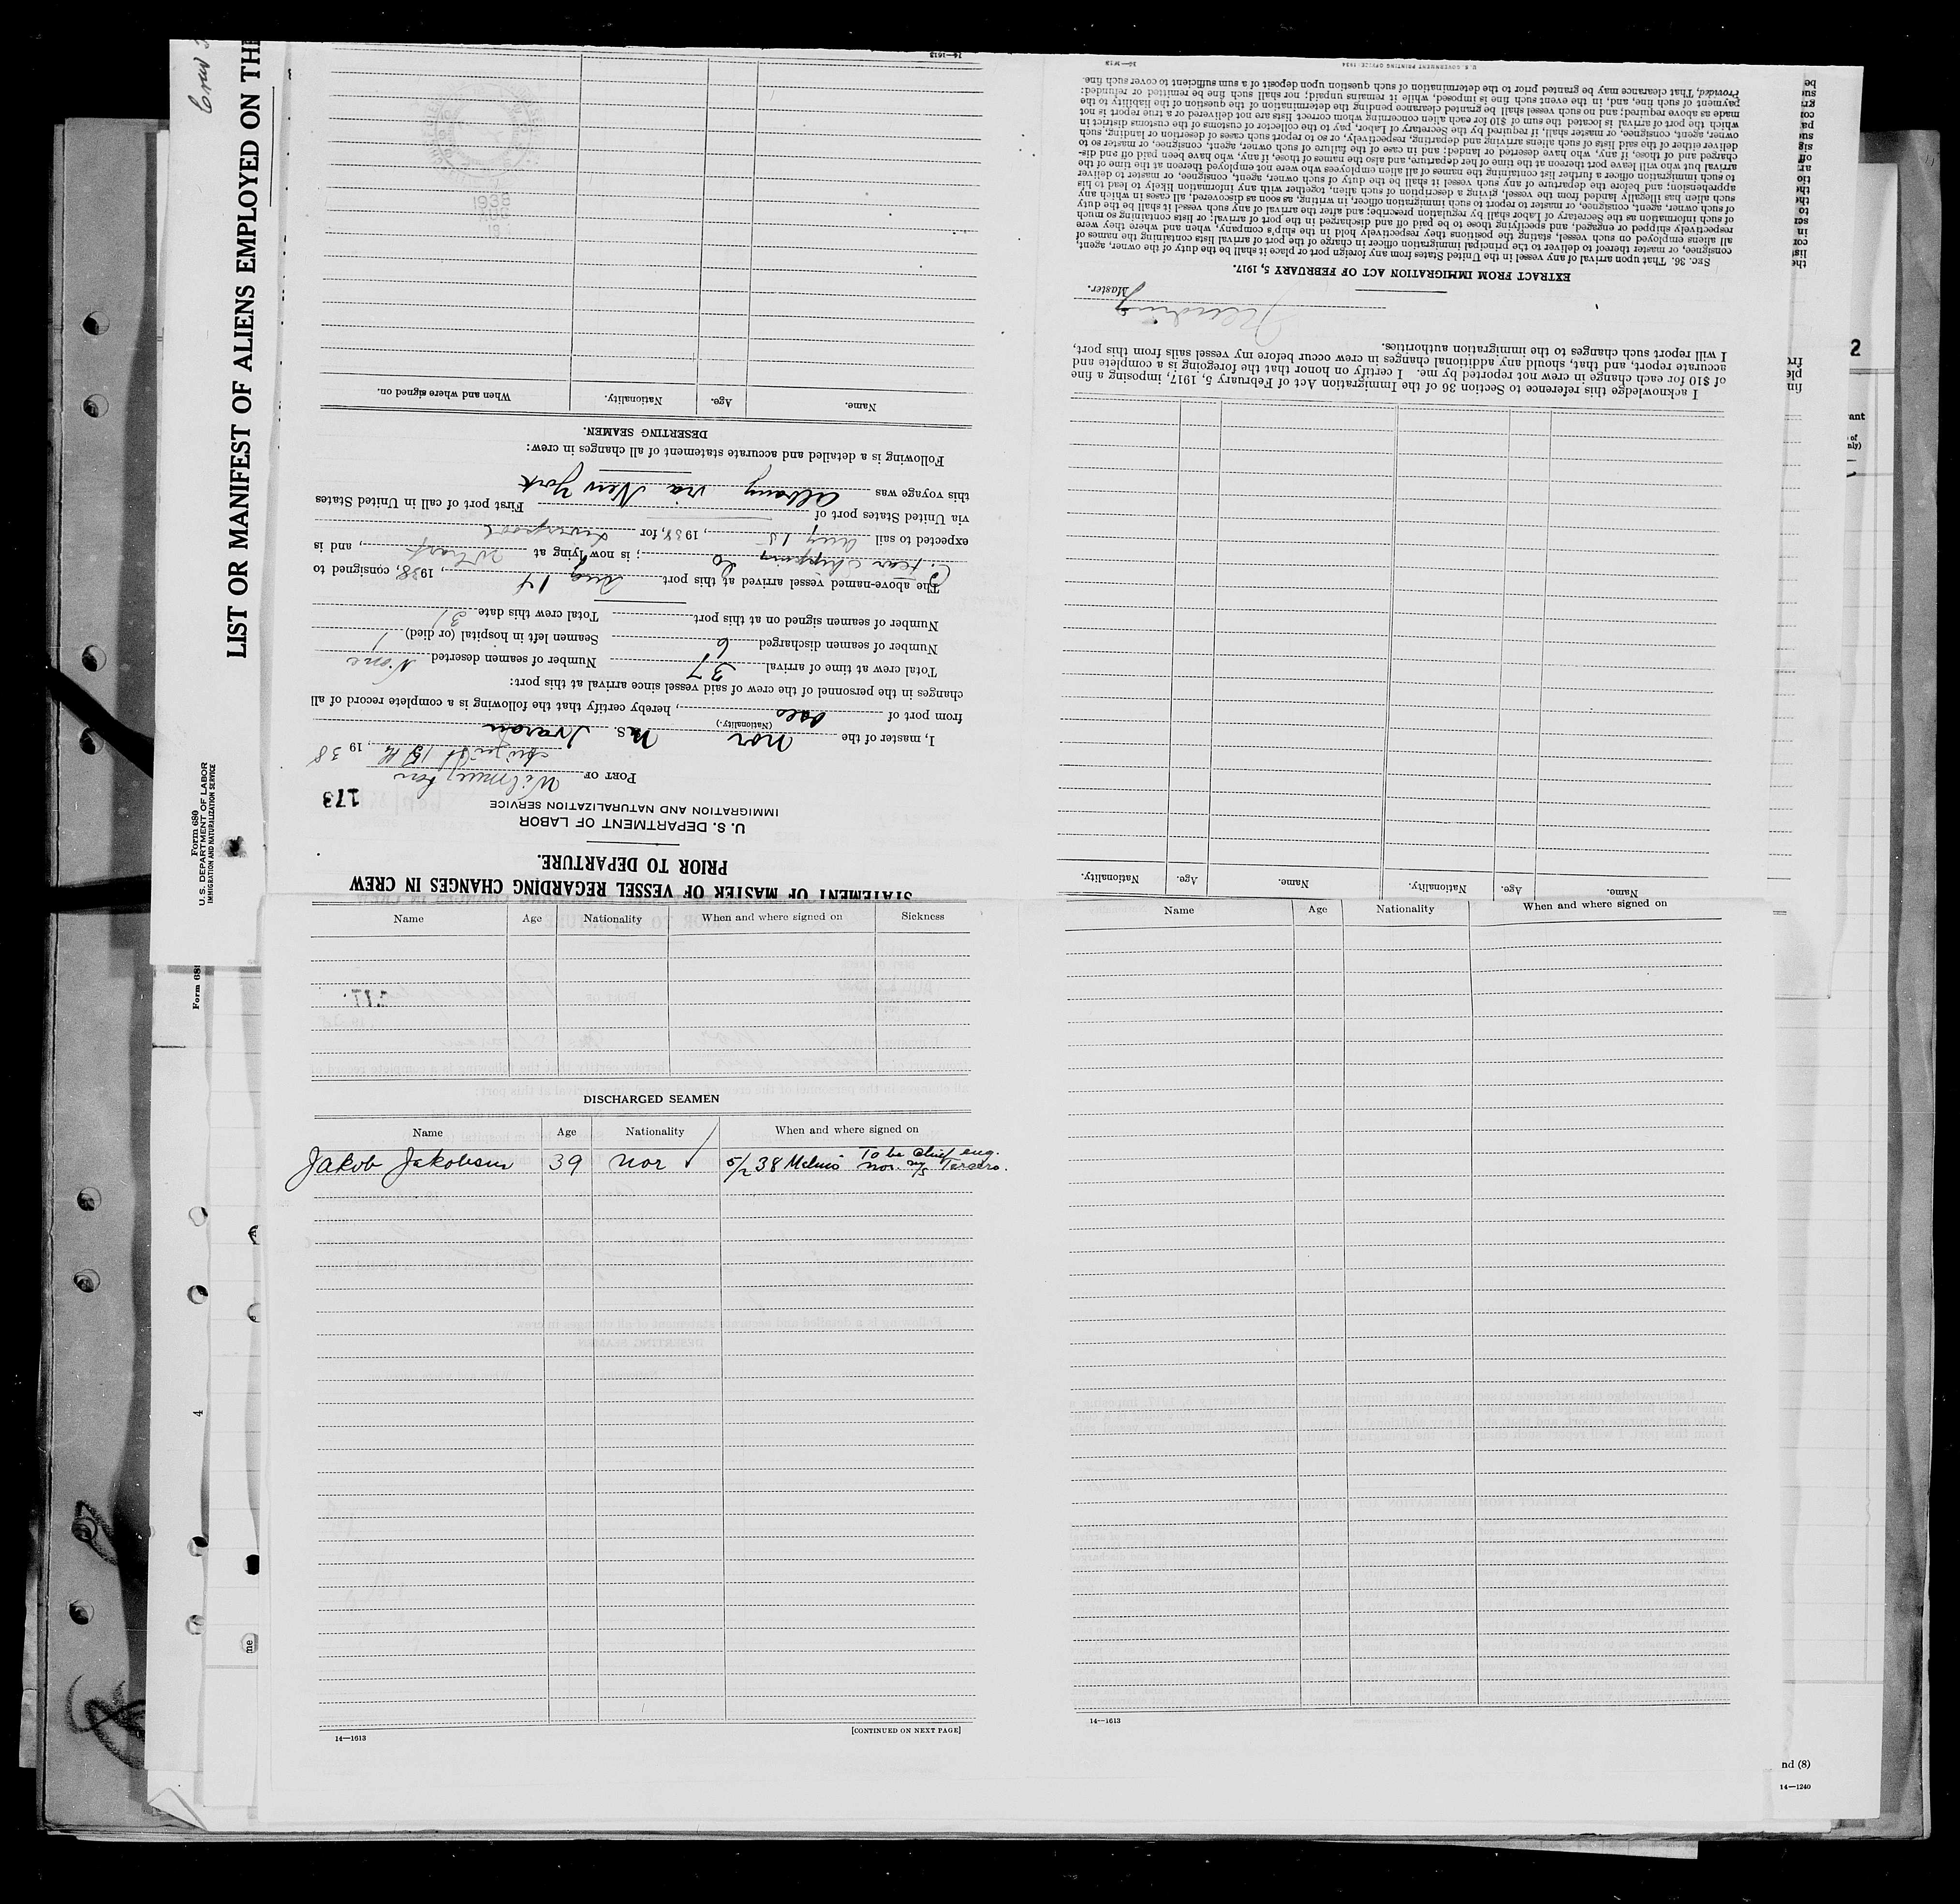 Crew
LIST OR MANIFEST OF ALIENS EMPLOYED ON TH
Form 680
U. S. DEPARTMENT OF LABOR
IMMIGRATION AND NATURALIZATION SERVICE
Form 68
4
me
STATEMENT OF MASTER OF VESSEL REGARDING CHANGES IN CREW
PRIOR TO DEPARTURE.
U. S. DEPARTMENT OF LABOR
IMMIGRATION AND NATURALIZATION SERVICE
173
PORT OF Wilmington
August 15th, 1938
I, master of the Nor M.S. Ivaran
(Nationality.)
from port of Oslo, hereby certify that the following is a complete record of all
changes in the personnel of the crew of said vessel since arrival at this port:
Total crew at time of arrival 37 Number of seamen deserted None
Number of seamen discharged 6 Seamen left in hospital (or died)
Number of seamen signed on at this port Total crew this date 31
The above-named vessel arrived at this port Aug 14, 1938, consigned to
C. Fear Shipping Co; is now lying at Wharf, and is
expected to sail Aug 15, 1938, for Liverpool
via United States port of First port of call in United States
this voyage was Albany via New York
Following is a detailed and accurate statement of all changes in crew:
DESERTING SEAMEN.
Name. Age. Nationality. When and where signed on.
1938
AUG
14—1613
Name. Age. Nationality. Name. Age. Nationality.
I acknowledge this reference to Section 36 of the Immigration Act of February 5, 1917, imposing a fine
of $10 for each change in crew not reported by me. I certify on honor that the foregoing is a complete and
accurate report, and that, should any additional changes in crew occur before my vessel sails from this port,
I will report such changes to the immigration authorities.
Master.
EXTRACT FROM IMMIGRATION ACT OF FEBRUARY 5, 1917.
SEC. 36. That upon arrival of any vessel in the United States from any foreign port or place it shall be the duty of the owner, agent,
consignee, or master thereof to deliver to the principal immigration officer in charge of the port of arrival lists containing the names of
all aliens employed on such vessel, stating the positions they respectively hold in the ship's company, when and where they were
respectively shipped or engaged, and specifying those to be paid off and discharged in the port of arrival; or lists containing so much
of such information as the Secretary of Labor shall by regulation prescribe; and after the arrival of any such vessel it shall be the duty
of such owner, agent, consignee, or master to report to such immigration officer, in writing, as soon as discovered, all cases in which any
such alien has illegally landed from the vessel, giving a description of such alien, together with any information likely to lead to his
apprehension; and before the departure of any such vessel it shall be the duty of such owner, agent, consignee, or master to deliver
to such immigration officer a further list containing the names of all alien employees who were not employed thereon at the time of the
arrival but who will leave port thereon at the time of her departure, and also the names of those, if any, who have been paid off and dis-
charged and of those, if any, who have deserted or landed; and in case of the failure of such owner, agent, consignee, or master so to
deliver either of the said lists of such aliens arriving and departing, respectively, or so to report such cases of desertion or landing, such
owner, agent, consignee, or master, shall, if required by the Secretary of Labor, pay to the collector of customs of the customs district in
which the port of arrival is located the sum of $10 for each alien concerning whom correct lists are not delivered or a true report is not
made as above required; and no such vessel shall be granted clearance pending the determination of the question of the liability to the
payment of such fine, and, in the event such fine is imposed, while it remains unpaid; nor shall such fine be remitted or refunded:
Provided, That clearance may be granted prior to the determination of such question upon deposit of a sum sufficient to cover such fine.
U. S. GOVERNMENT PRINTING OFFICE: 1934
14—1613
Name Age Nationality When and where signed on Sickness
DISCHARGED SEAMEN
Name Age Nationality When and where signed on
Jakob Jakobsen 39 Nor 5/2 38 To be chief eng.
Nor. m/s Tercero.
14—1613
[CONTINUED ON NEXT PAGE]
Name Age Nationality When and where signed on
14—1613
2
nd (8)
14—1240